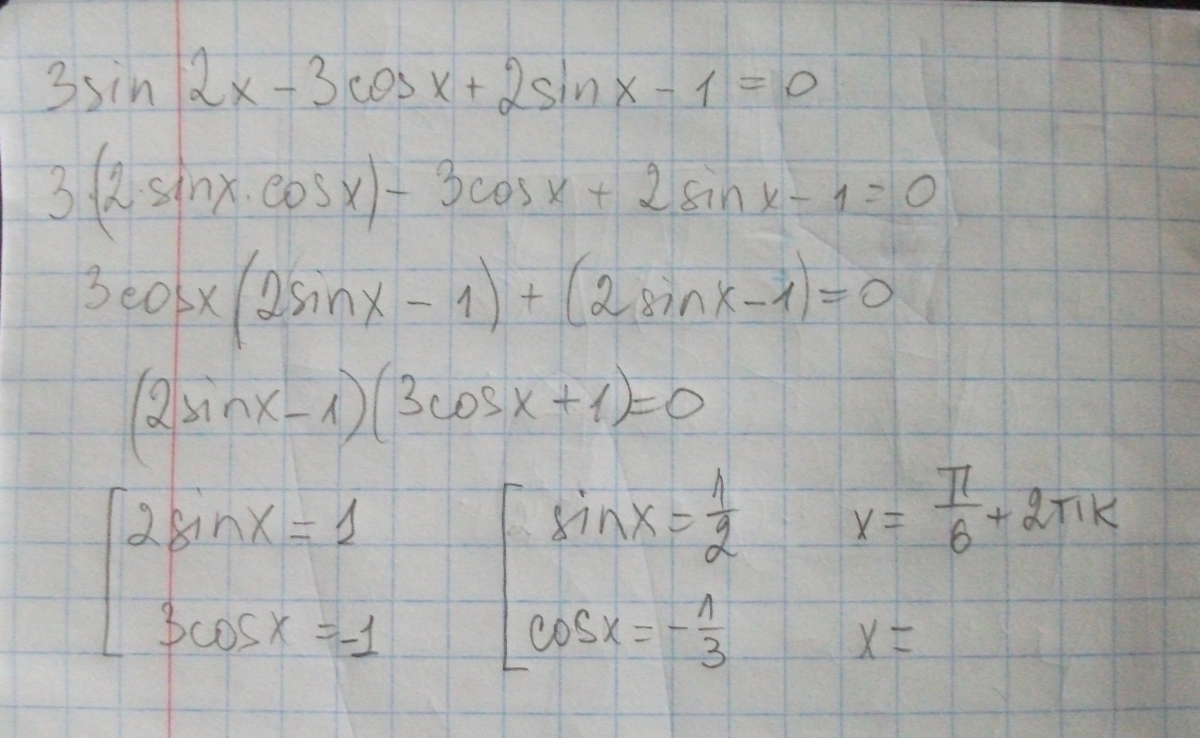 3sin 2x - 3cosx + 2sinx - 1 = 0
3(2·sinx·cosx) - 3cosx + 2sinx - 1 = 0
3cosx(2sinx - 1) + (2sinx - 1) = 0
(2sinx - 1)(3cosx + 1) = 0
[2sinx = 1 [sinx = 1/2 x = π/6 + 2πk
3cosx = -1 cosx = -1/3 x =